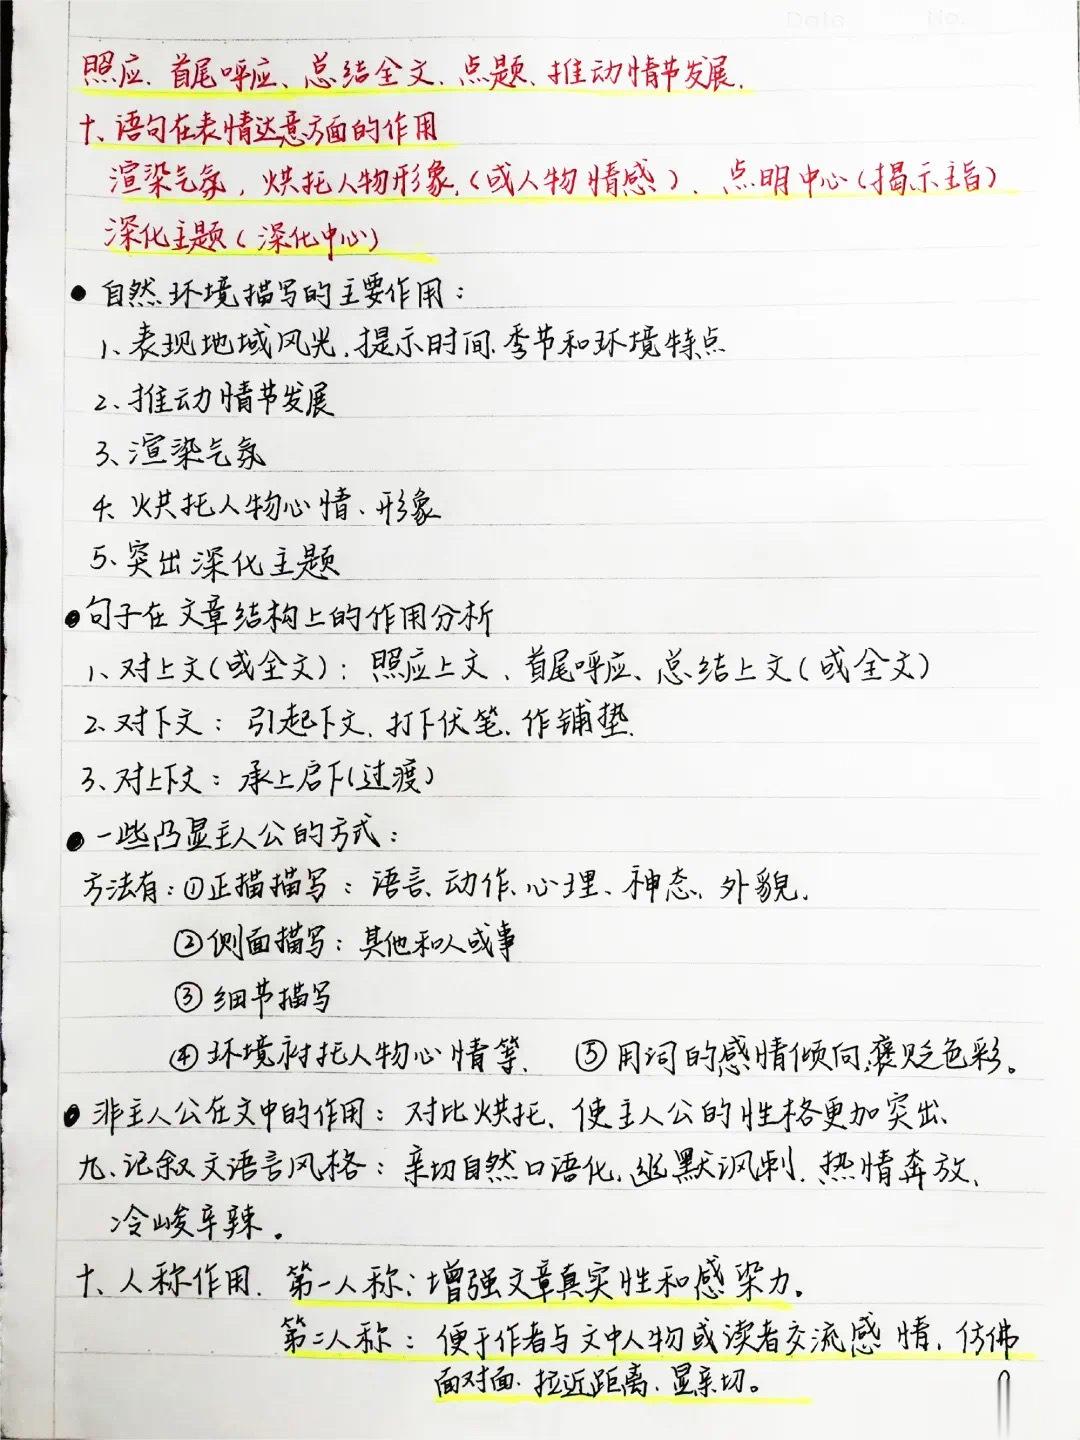 Date No.
照应、首尾呼应、总结全文、点题、推动情节发展.
十、语句在表情达意方面的作用
渲染气氛,烘托人物形象,(或人物情感)、点明中心(揭示主旨)
深化主题(深化中心)
● 自然环境描写的主要作用:
1、表现地域风光,提示时间、季节和环境特点
2、推动情节发展
3、渲染气氛
4、烘托人物心情、形象
5、突出深化主题
●句子在文章结构上的作用分析
1、对上文(或全文): 照应上文、首尾呼应、总结上文(或全文)
2、对下文: 引起下文、打下伏笔、作铺垫.
3、对上下文: 承上启下(过渡)
● 一些凸显主人公的方式:
方法有:①正描描写: 语言、动作、心理、神态、外貌.
②侧面描写: 其他和人或事
③细节描写
④环境衬托人物心情等. ⑤用词的感情倾向,褒贬色彩。
● 非主人公在文中的作用: 对比烘托, 使主人公的性格更加突出、
九、记叙文语言风格: 亲切自然口语化,幽默讽刺,热情奔放,
冷峻辛辣。
十、人称作用. 第一人称: 增强文章真实性和感染力。
第二人称: 便于作者与文中人物或读者交流感情,仿佛
面对面、拉近距离、显亲切。